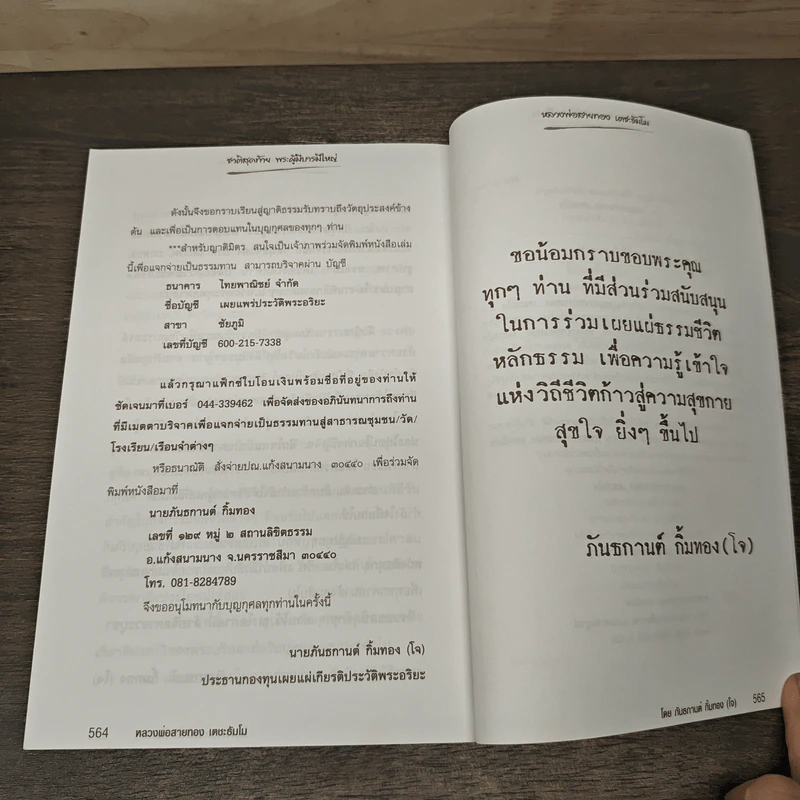 ชาติสุดท้าย พระผู้มีบารมีใหญ่
ดังนั้นจึงขอกราบเรียนสู่ญาติธรรมรับทราบถึงวัตถุประสงค์ข้าง
ต้น และเพื่อเป็นการตอบแทนในบุญกุศลของทุกๆ ท่าน
***สำหรับญาติมิตร สนใจเป็นเจ้าภาพร่วมจัดพิมพ์หนังสือเล่ม
นี้เพื่อแจกจ่ายเป็นธรรมทาน สามารถบริจาคผ่าน บัญชี
ธนาคาร ไทยพาณิชย์ จำกัด
ชื่อบัญชี เผยแพร่ประวัติพระอริยะ
สาขา ชัยภูมิ
เลขที่บัญชี 600-215-7338
แล้วกรุณาแฟ็กซ์ใบโอนเงินพร้อมชื่อที่อยู่ของท่านให้
ชัดเจนมาที่เบอร์ 044-339462 เพื่อจัดส่งของอภินันทนาการถึงท่าน
ที่มีเมตตาบริจาคเพื่อแจกจ่ายเป็นธรรมทานสู่สาธารณชุมชน/วัด/
โรงเรียน/เรือนจำต่างๆ
หรือธนาณัติ สั่งจ่ายปณ.แก้งสนามนาง ๓๐๔๔๐ เพื่อร่วมจัด
พิมพ์หนังสือมาที่
นายภันธกานต์ กิ้มทอง
เลขที่ ๑๒๙ หมู่ ๒ สถานลิขิตธรรม
อ.แก้งสนามนาง จ.นครราชสีมา ๓๐๔๔๐
โทร. 081-8284789
จึงขออนุโมทนากับบุญกุศลทุกท่านในครั้งนี้
นายภันธกานต์ กิ้มทอง (โจ)
ประธานกองทุนเผยแผ่เกียรติประวัติพระอริยะ
564 หลวงพ่อสายทอง เตชะธัมโม
หลวงพ่อสายทอง เตชะธัมโม
ขอน้อมกราบขอบพระคุณ
ทุกๆ ท่าน ที่มีส่วนร่วมสนับสนุน
ในการร่วมเผยแผ่ธรรมชีวิต
หลักธรรม เพื่อความรู้เข้าใจ
แห่งวิถีชีวิตก้าวสู่ความสุขกาย
สุขใจ ยิ่งๆ ขึ้นไป
ภันธกานต์ กิ้มทอง(โจ)
โดย ภันธกานต์ กิ้มทอง (โจ) 565